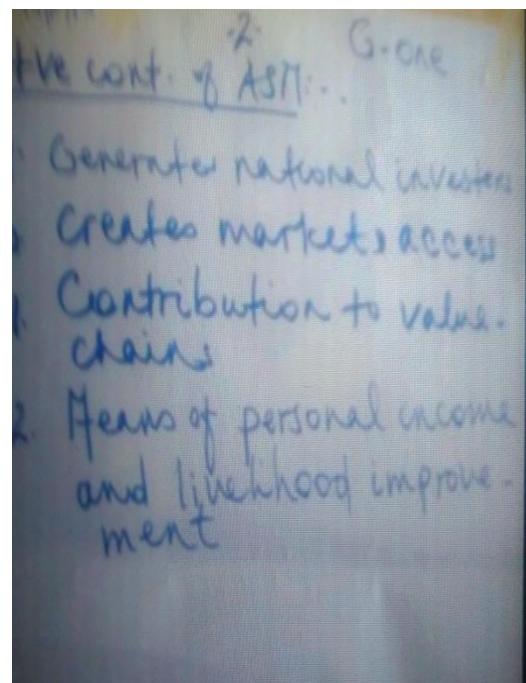 -2-
G. one
+ve cont. of ASM:-.
Generates national investors
Creates markets access
1. Contribution to value-
chains
2. Means of personal income
and livelihood improve-
ment